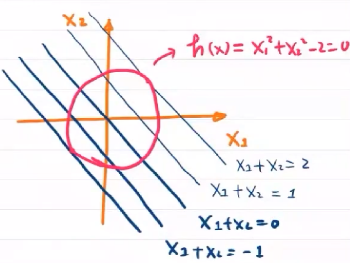 X₂
h(x) = X₁² + X₂² - 2 = 0
X₁
X₁ + X₂ = 2
X₁ + X₂ = 1
X₁ + X₂ = 0
X₁ + X₂ = -1